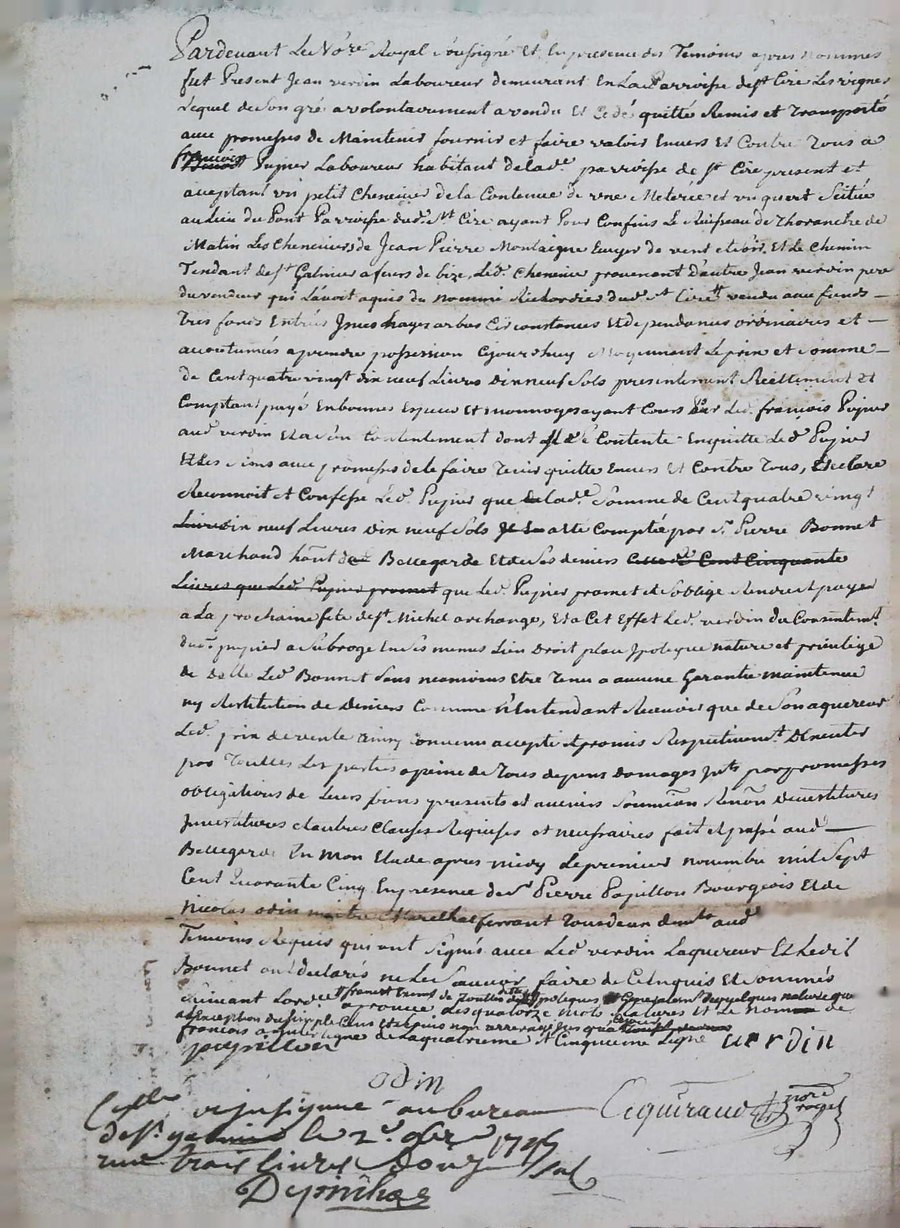 Pardevant Le No.re Royal Soussigné Et En presence des Temoins apres nommes
fut Present Jean verdin Laboureur demeurant En La parroisse de St Cire Les vignes
Lequel de Son gré a volontairement a vendu Et Cedé quitté Remis et Transporté
avec promesses de Maintenir fournir et faire valoir Envers Et Contre Tous à
françois Pupier Laboureur habitant de lad.e parroisse de St Cire present et
aceptant un petit Chenevier de la Contenue de une Meterée et un quart Scitué
au Lieu du Pont Parroisse dud. St Cire ayant Pour Confins Le Ruisseau de Thoranche de
Matin Les Cheneviers de Jean Pierre Montaigne Ecuyer de vent et soir Et Le Chemin
Tendant de St Galmier a feurs de bize, Led. Chenevier provenant d'autre Jean verdin pere
du vendeur qui L'avoit aquis du nommé Richardier dud. St Cire vendu avec fonds
Tres fonds Entrées Jssues hayes arbres Circonstances Et dependances ordinaires et
acoutumés a prendre possession Cejourdhuy Moyennant Le prix et Somme
de Cent quatre vingt dix neuf Livres dix neuf Sols presentement Réellement Et
Comptant payé En bonnes Especes Et monnoyes ayant Cours Par Led. françois Pupier
aud. verdin Et a Son Contentement dont Il Contente En quitte Led. Pupier
Et Les Siens avec promesses de le faire Tenir quitte Envers Et Contre Tous, Declare
Reconnoit et Confesse Led. Pupier que lad.e Somme de Cent quatre vingt
dix neuf Livres dix neuf Sols a été Comptée par Sr. Pierre Bonnet
Marchand habt de Bellegarde Et de Ses deniers Cent Cinquante
Livres que Led. Pupier promet que Led. Pupier promet et s'oblige Rendre et payer
a La prochaine fete de St Michel archange, Et a Cet Effet Led. verdin du Consentemt
dud. pupier a Subrogé En Ses mêmes Lieu Droit place ypoteque nature et privilege
de Led. Bonnet Sans neanmoins Etre Tenu a aucune Garantie maintenue
ny Restitution de deniers Comme N'Entendant Recevoir que de Son aquereur
Led. prix de vente ainsy Convenu accepté et promis Respectivemt. Executer
par Toutes Les parties a peine de Tous depens domages jnts par promesses
obligations de Leurs biens presents et avenirs Soumion Renon
et autres Clauses Requises et necessaires fait et passé aud.
Bellegarde En mon Etude apres midy Le premier novembre mil Sept
Cent Quarante Cinq En presence de Sr Pierre Papillon Bourgeois Et de
Nicolas odin maitre Marechal ferrant Tous deux aud.
Temoins Requis qui ont Signés avec Led. verdin L'aquereur Et Ledit
Bonnet ont declarés ne Le Sçavoir faire de Ce Enquis Et Sommés
Suivant L'ordce franc et exempt de Touttes ypoteques nature que
a l'exception du Simple Cens
francois a la quatrieme et Cinquieme Ligne verdin
papillon
odin
Cequiraud nore royal
Collé et insignué au bureau
de St galmier le 2e 9bre 1745
reçu trois livres Sols
Depinhac